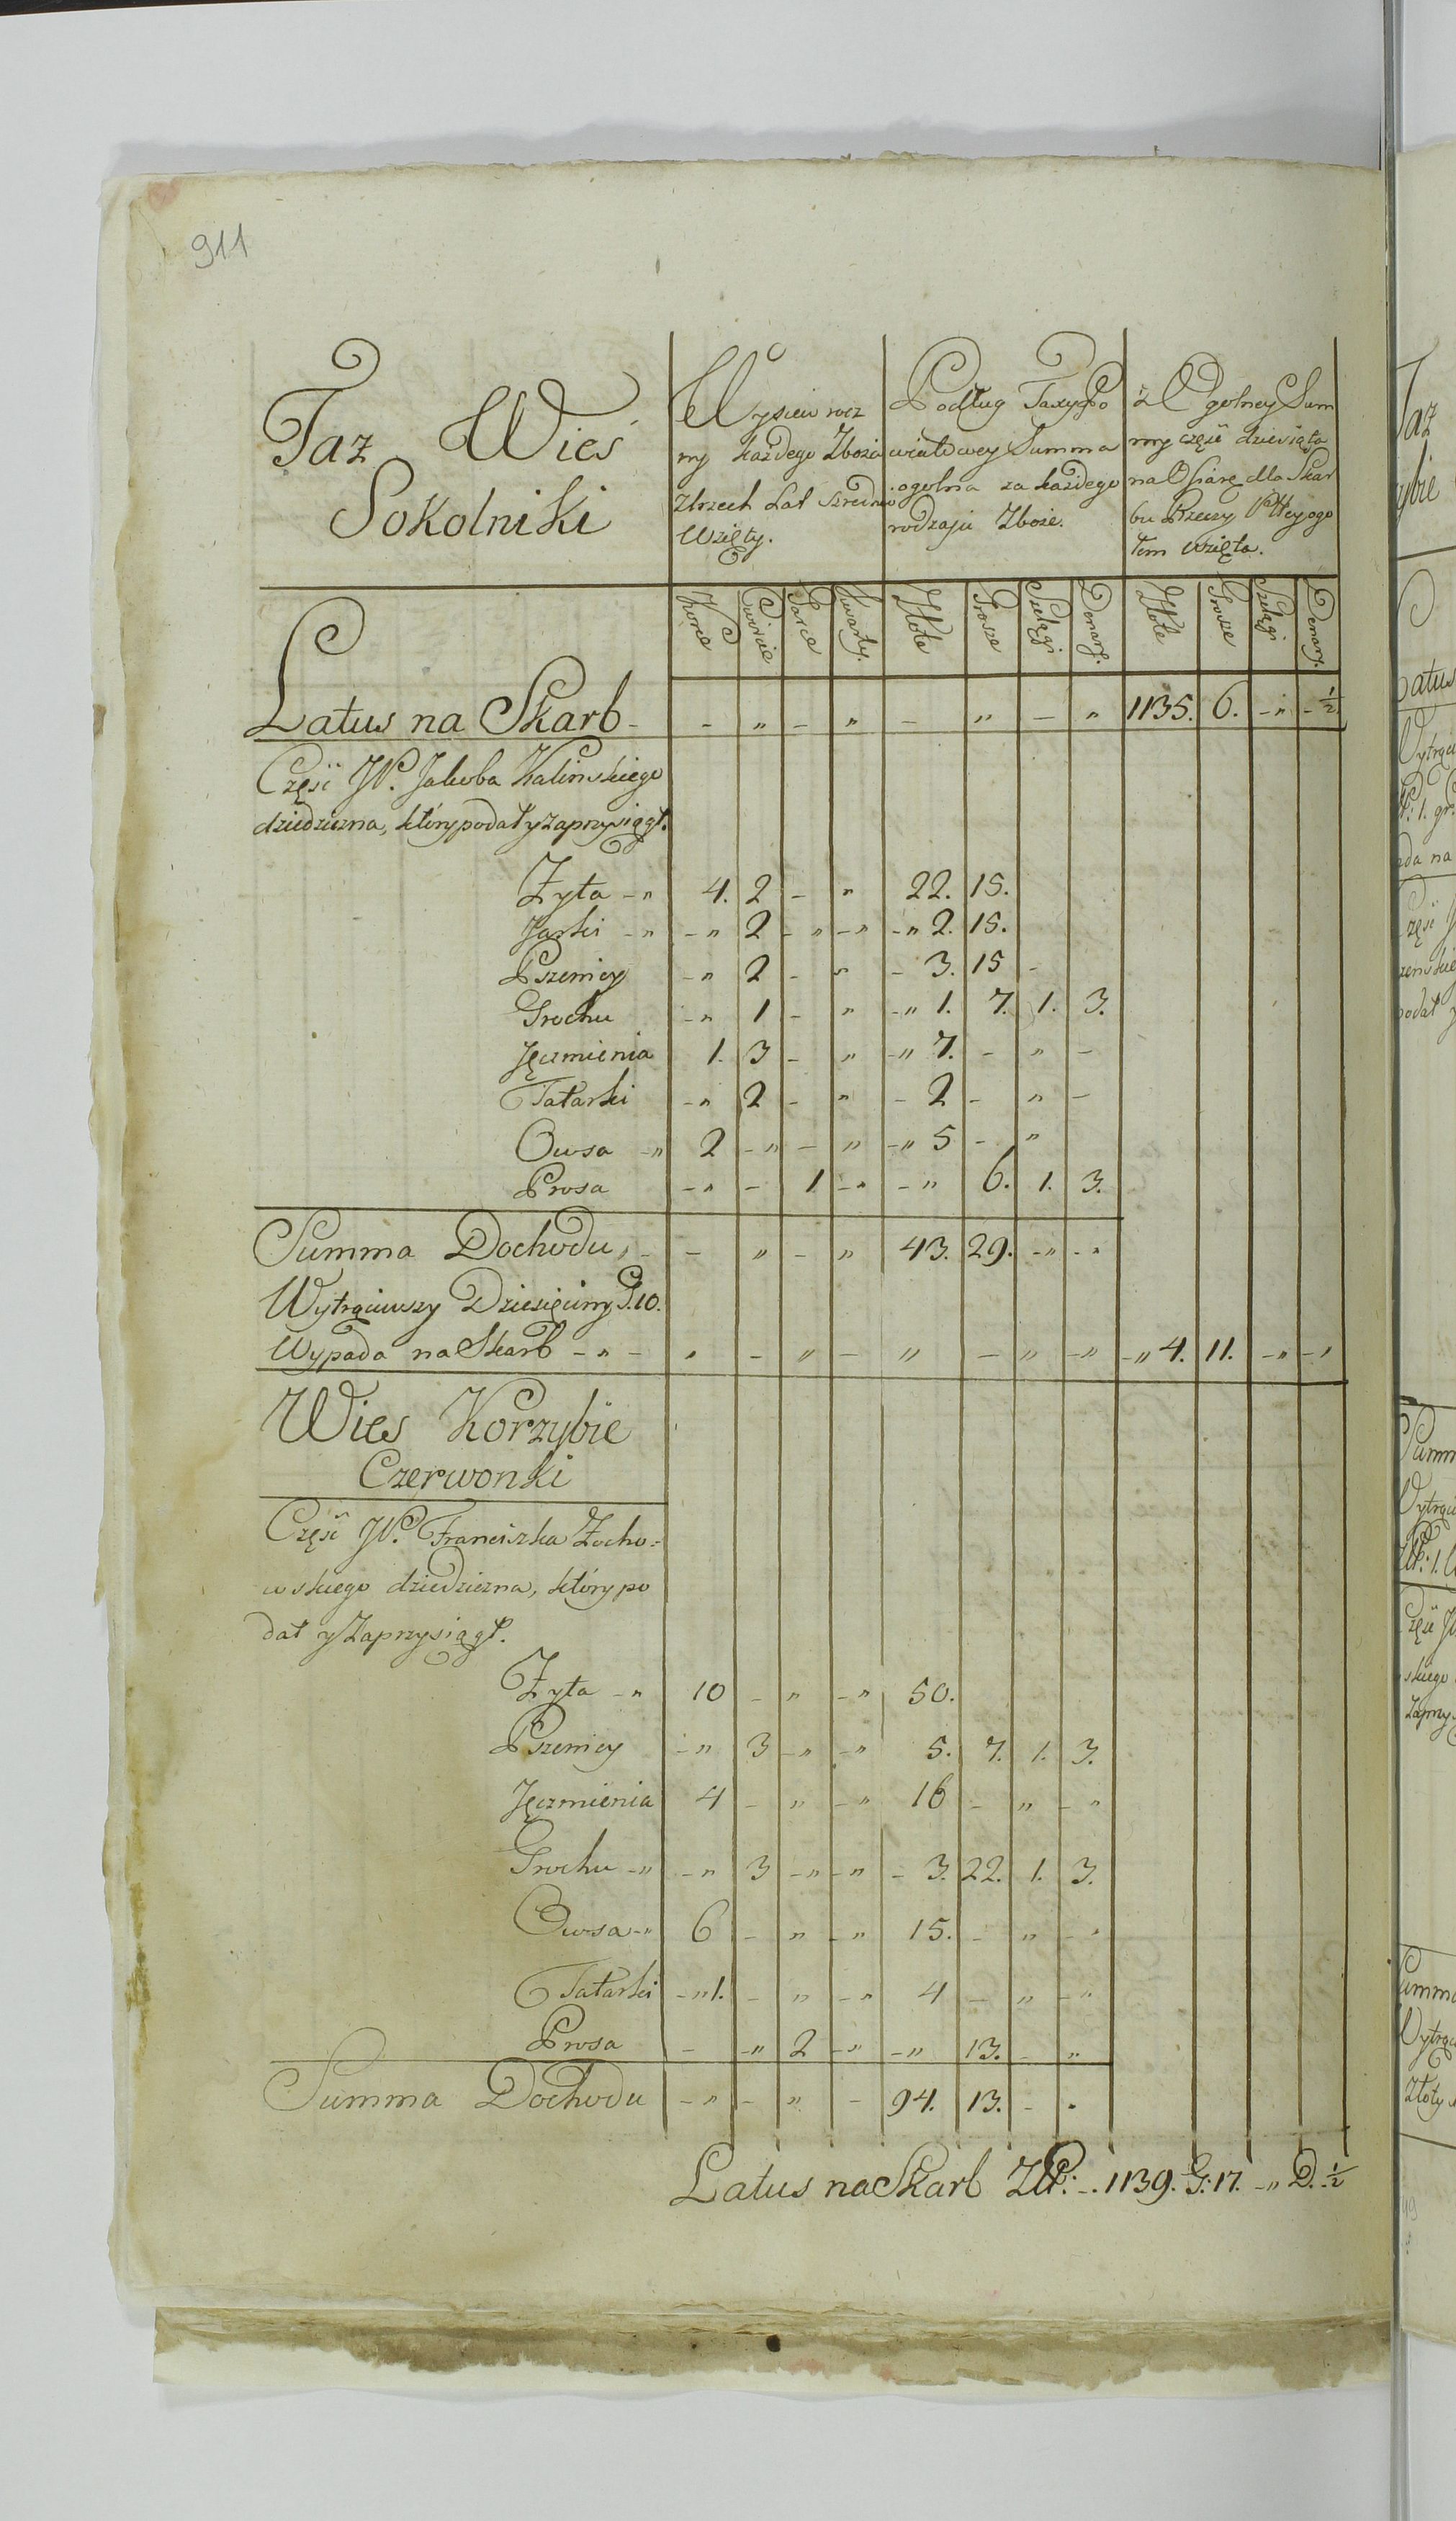 911
Taz Wieś
Sokolniki
Wysiew rocz
ny każdego Zboża
Ztrzech Lat szrednio
Wzięty.
Podług Taxy Po
wiatowey Summa
ogolna za każdego
rodzaju Zboże.
z Ogolney Sum
my część dziesiąta
na Ofiarę dla Skar
bu Rzeczy Pttey ogo
łem wzięta.
Korce Cwiercie Garce Kwarty. Złote Grosze Szelągi Denary. Złote Grosze Szelągi Denary.
Latus na Skarb - - „ - „ - „ - „ 1135. 6. -„ - ½
Część JP. Jakuba Kalinskiego
dziedziczna, który podał y zaprzysiągł.
Zyta -„ 4. 2 - „ 22. 15.
Jarki -„ -„ 2 -„ -„ -„ 2. 15.
Pszenicy -„ 2 - „ - 3. 15 -
Grochu -„ 1 - „ -„ 1. 7. 1. 3.
Jęczmienia 1. 3 - „ -„ 7. - „ -
Tatarki -„ 2 - „ - 2 - „ -
Owsa -„ 2 -„ - „ -„ 5 - „
Prosa -„ - 1 -„ -„ 6. 1. 3.
Summa Dochodu - - „ - „ 43. 29. -„ -„
Wytrąciwszy Dziesięciny G. 10.
Wypada na Skarb -„- „ - „ - „ - „ -„ -„ 4. 11. -„ -„
Wies Korzybie
Czerwonki
Część JP. Franciszka Zocho-
wskiego dziedziczna, który po
dał y Zaprzysiągł.
Zyta -„ 10 - „ -„ 50.
Pszenicy -„ 3 -„ -„ 5. 7. 1. 3.
Jęczmienia 4 - „ -„ 16 - „ -„
Grochu -„ -„ 3 -„ -„ - 3. 22. 1. 3.
Owsa -„ 6 - „ -„ 15. - „ -„
Tatarki -„ 1. - „ -„ 4 - „ -„
Prosa - -„ 2 -„ -„ 13. - „
Summa Dochodu -„ - „ - 94. 13. - „
Latus na Skarb ZłP: -. 1139. G: 17. -„ D. ½